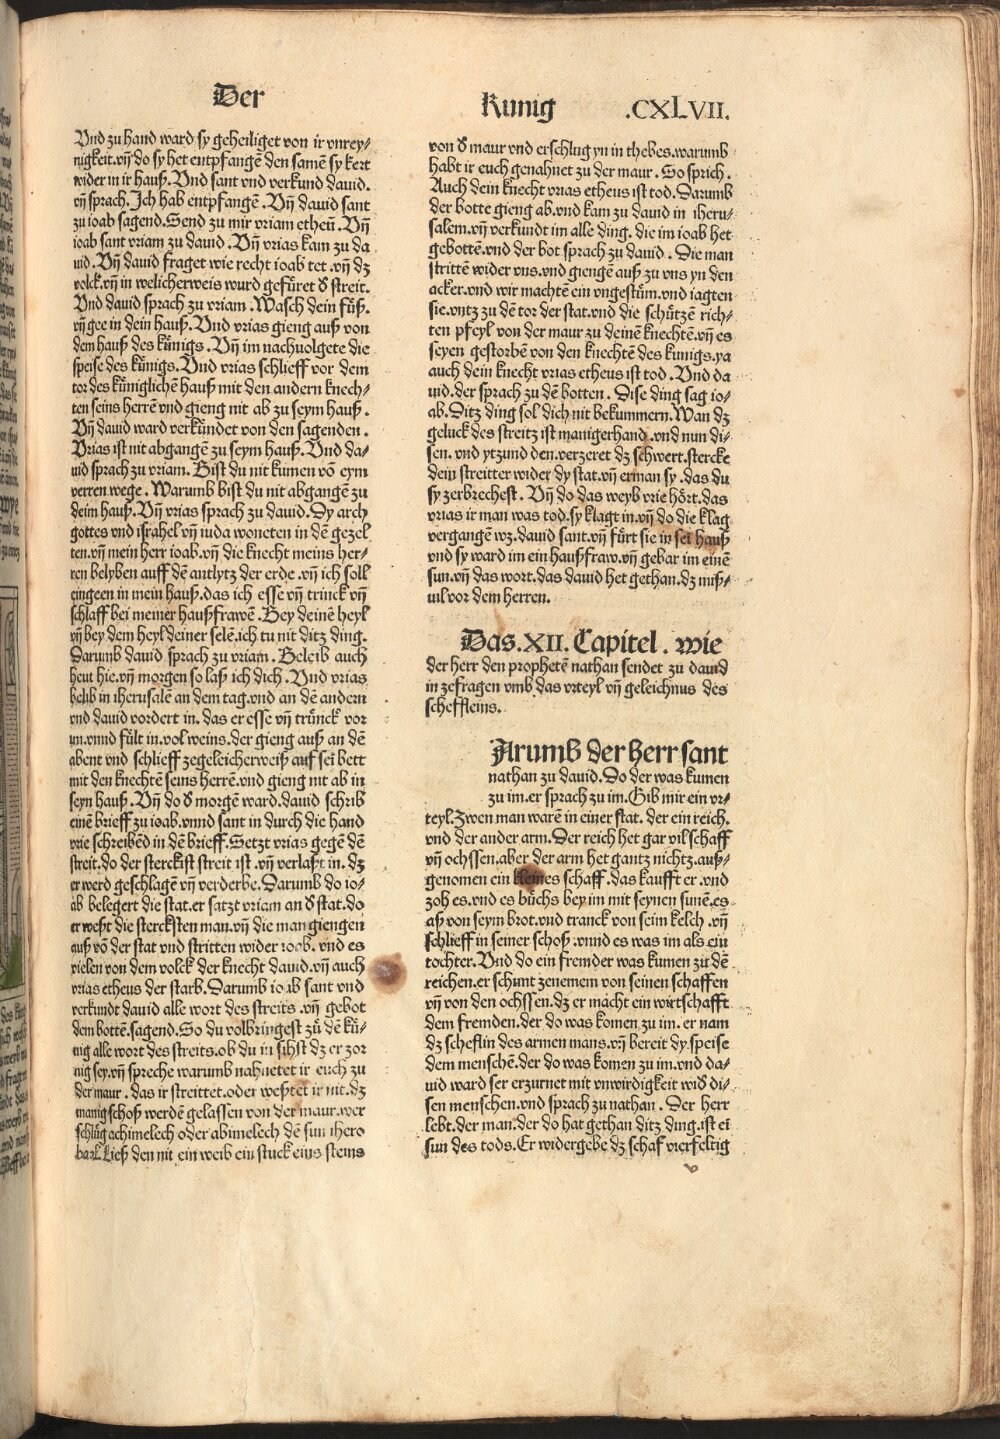 Der
Kunig .CXLVII.
Vnd zu hand ward sy geheiliget von ir vnrey⸗
nigkeit.vñ do sy het entpfangẽ den samẽ sy kert
wider in ir hauß.Vnd sant vnd verkund dauid.
vñ sprach.Ich hab entpfangẽ.Vñ dauid sant
zu ioab sagend.Send zu mir vriam etheũ.Vñ
ioab sant vriam zu dauid.Vñ vrias kam zu da
uid.Vñ dauid fraget wie recht ioab tet.vñ dz
volck.vñ in welicherweis wurd gefüret d̕ streit.
Vnd dauid sprach zu vriam.Wasch dein füß.
vñ gee in dein hauß.Vnd vrias gieng auß von
dem hauß des künigs.Vñ im nachuolgete die
speise des künigs.Vnd vrias schlieff vor dem
tor des küniglichẽ hauß mit den andern knech⸗
ten seins herrẽ vnd gieng nit ab zu seym hauß.
Vñ dauid ward verkündet von den sagenden.
Vrias ist nit abgangẽ zu seym hauß.Vnd da⸗
uid sprach zu vriam.Bist du nit kumen võ eym
verren wege.Warumb bist du nit abgangẽ zu
deim hauß.Vñ vrias sprach zu dauid.Dy arch
gottes vnd israhel vñ iuda woneten in dẽ gezel
ten.vñ mein herr ioab.vñ die knecht meins her⸗
ren belyben auff dẽ antlytz der erde.vñ ich soll
eingeen in mein hauß.das ich esse vñ trinck vñ
schlaff bei meiner haußfrawẽ.Bey deinẽ heyl
vñ bey dem heyl deiner selẽ.ich tu nit ditz ding.
Darumb dauid sprach zu vriam.Beleib auch
heut hie.vñ morgen so laß ich dich.Vnd vrias
belib in iherusalẽ an dem tag.vnd an dẽ andern
vnd dauid vordert in.das er esse vñ trünck vor
im.vnnd fült in.vol weins.der gieng auß an dẽ
abent vnd schlieff zegeleicherweiß auf seĩ bett
mit den knechtẽ seins herrẽ.vnd gieng nit ab in
seyn hauß.Vñ do d̕ morgẽ ward.dauid schrib
einẽ brieff zu ioab.vnnd sant in durch die hand
vrie schreibẽd in dẽ brieff.Setzt vrias gegẽ dẽ
streit.do der sterckist streit ist.vñ verlaßt in.dz
er werd geschlagẽ vñ verderbe.Darumb do io⸗
ab belegert die stat.er satzt vriam an d̕ stat.do
er weßt die stercksten man.vñ die man giengen
auß võ der stat vnd stritten wider ioab.vnd es
vielen von dem volck der knecht dauid.vñ auch
vrias etheus der starb.Darumb ioab sant vnd
verkundt dauid alle wort des streits.vñ gebot
dem bottẽ.sagend.So du volbringest zů dẽ kü⸗
nig alle wort des streits.ob du in sihst dz er zor
nig sey.vñ spreche warumb nahnetet ir euch zu
der maur.das ir streittet.oder weßtet ir nit.dz
manig schoß werdẽ gelassen von der maur.wer
schlůg achimelech oder abimelech dẽ sun ihero
baal.Ließ den nit ein weib ein stuck eins steins
von d̕ maur vnd erschlug yn in thebes.warumb
habt ir euch genahnet zu der maur.So sprich.
Auch dein knecht vrias etheus ist tod.Darumb
der botte gieng ab.vnd kam zu dauid in iheru⸗
salem.vñ verkundt im alle ding.die im ioab het
gebottẽ.vnd der bot sprach zu dauid.Die man
strittẽ wider vns.vnd giengẽ auß zu vns yn den
acker.vnd wir machtẽ ein vngestüm.vnd iagten
sie.vntz zu dẽ tor der stat.vnd die schützẽ rich⸗
ten pfeyl von der maur zu deinẽ knechtẽ.vñ es
seyen gestorbẽ von den knechtẽ des kunigs.ya
auch dein knecht vrias etheus ist tod.Vnd da
uid.der sprach zu dẽ botten.Dise ding sag io⸗
ab.Ditz ding sol dich nit bekummern.Wan dz
geluck des streitz ist manigerhand.vnd nun di⸗
sen.vnd ytzund den.verzeret dz schwert.stercke
dein streitter wider dy stat.vñ erman sy.das du
sy zerbrechest.Vñ do das weyb vrie hört.das
vrias ir man was tod.sy klagt in.vñ do die klag
vergangẽ wz.dauid sant.vñ fürt sie in seĩ hauß
vnd sy ward im ein haußfraw.vñ gebar im einẽ
sun.vñ das wort.das dauid het gethan.dz miß⸗
uil vor dem herren.
Das.XII.Capitel.wie
der herr den prophetẽ nathan sendet zu dauid
in zefragen vmb das vrteyl vñ geleichnus des
scheffleins.
Arumb der herr sant
nathan zu dauid.Do der was kumen
zu im.er sprach zu im.Gib mir ein vr⸗
teyl.Zwen man warẽ in einer stat.der ein reich.
vnd der ander arm.Der reich het gar vil schaff
vñ ochssen.aber der arm het gantz nichtz.auß⸗
genomen ein kleines schaff.das kaufft er.vnd
zoh es.vnd es büchs bey im mit seynen sunẽ.es
aß von seym brot.vnd tranck von seim kelch.vñ
schlieff in seiner schoß.vnnd es was im als ein
tochter.Vnd do ein fremder was kumen zů dẽ
reichen.er schunt zenemem von seinen schaffen
vñ von den ochssen.dz er macht ein wirtschafft
dem fremden.der do was komen zu im.er nam
dz scheflin des armen mans.vñ bereit dy speise
dem menschẽ.der do was komen zu im.vnd da⸗
uid ward ser erzurnet mit vnwirdigkeit wid̕ di⸗
sen menschen.vnd sprach zu nathan.Der herr
lebt.der man.der do hat gethan ditz ding.ist eĩ
sun des tods.Er widergebe dz schaf vierfeltig
v